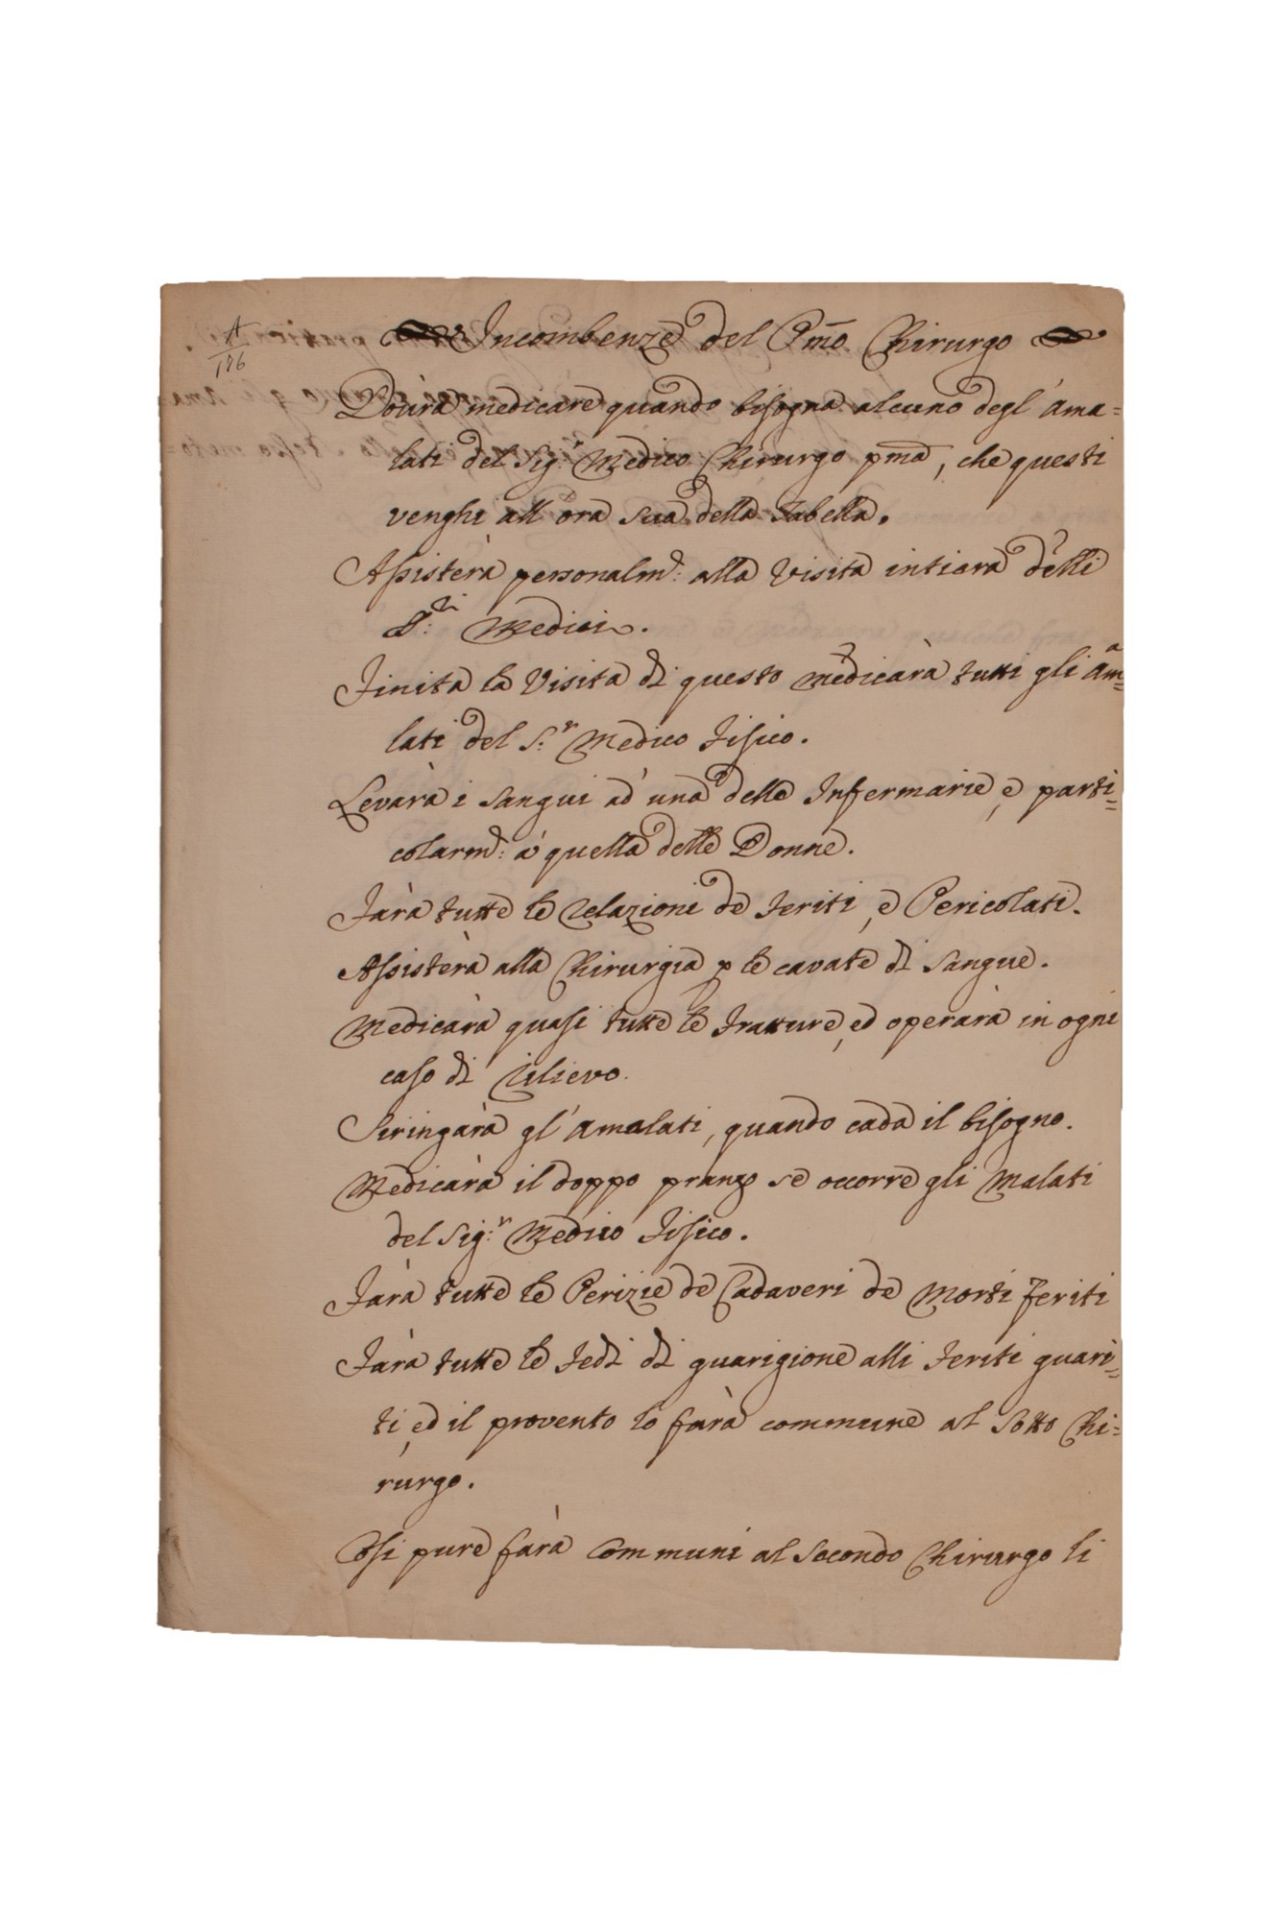 A
196
Incombenze del Pmõ. Chirurgo
Dourà medicare quando bisogna alcuno degl' ama=
lati del Sig.r Medico Chirurgo pmã, che questi
venghi all' ora sua della Tabella.
Assisterà personalm.e: alla Visita intiera delli
S.ri Medici.
Finita la Visita di questo medicarà tutti gli ama=
lati del S.r Medico Fisico.
Levarà i sangui ad una delle Infermarie, e parti=
colarm.e: a' quella delle Donne.
Farà tutte le relazioni de feriti, e Pericolati.
Assisterà alla Chirurgia p le cavate di sangue.
Medicarà quasi tutte le fratture, ed operarà in ogni
caso di rilievo.
Siringarà gl' amalati, quando cada il bisogno.
Medicarà il doppo pranzo se occorre gli malati
del Sig.r Medico Fisico.
Farà tutte le Perizie de Cadaveri de morti feriti
Farà tutte le fedi di guarigione alli feriti guari=
ti, ed il provento lo farà commune al Sotto Chi=
rurgo.
Così pure farà communi al Secondo Chirurgo li